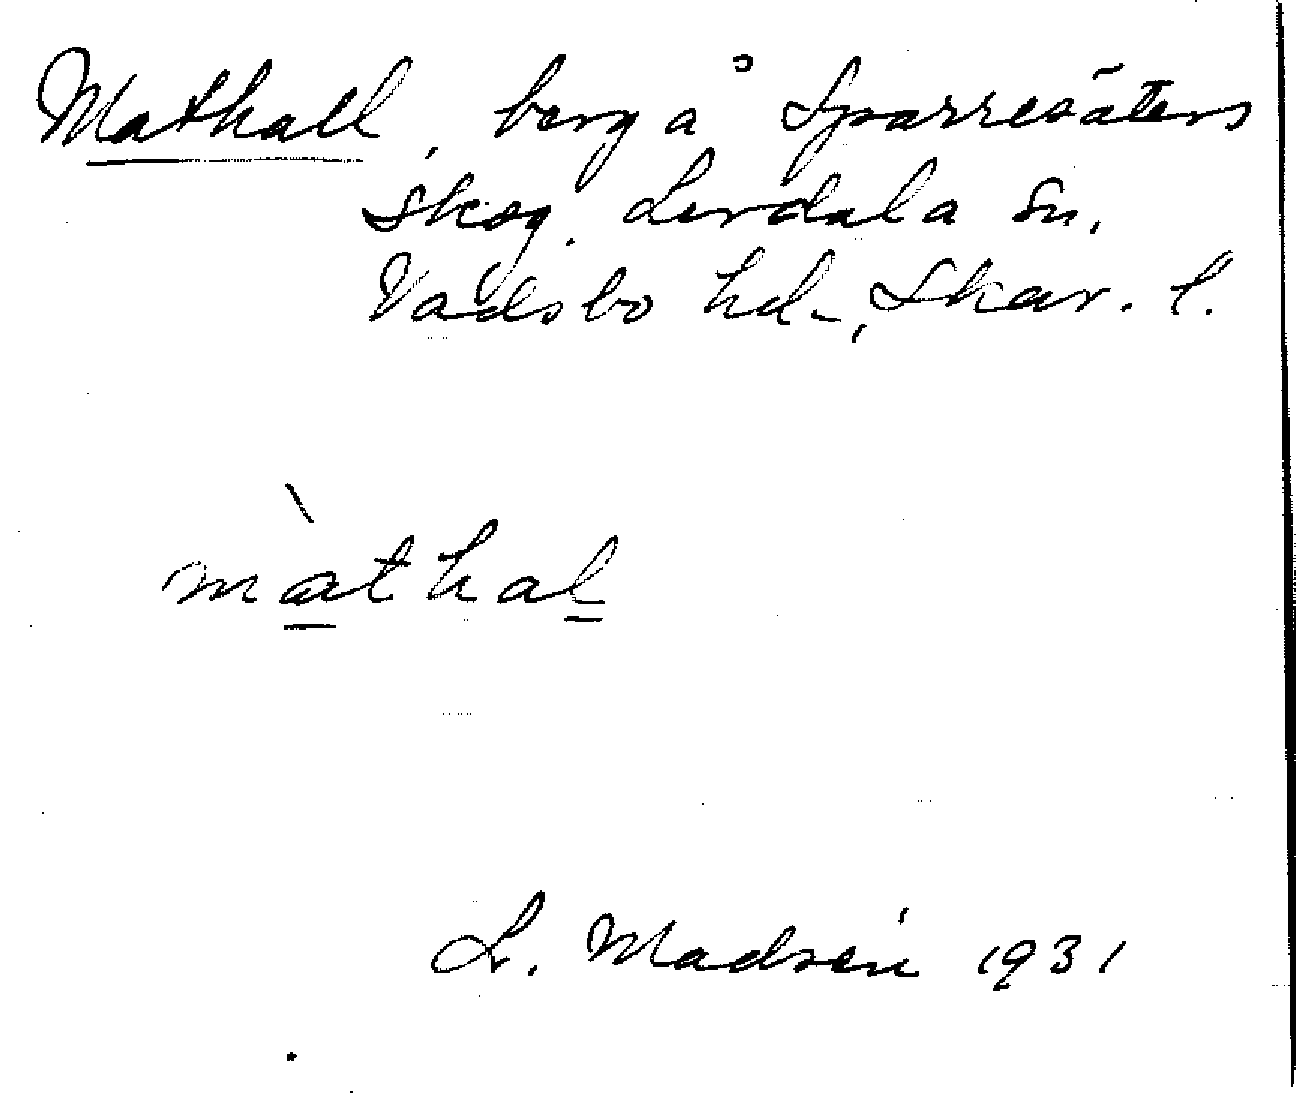 Mathall, berg å Sparresäters
skog. Lerdala sn,
Vadsbo hd., Skar. l.
màthal
L. Madsén 1931